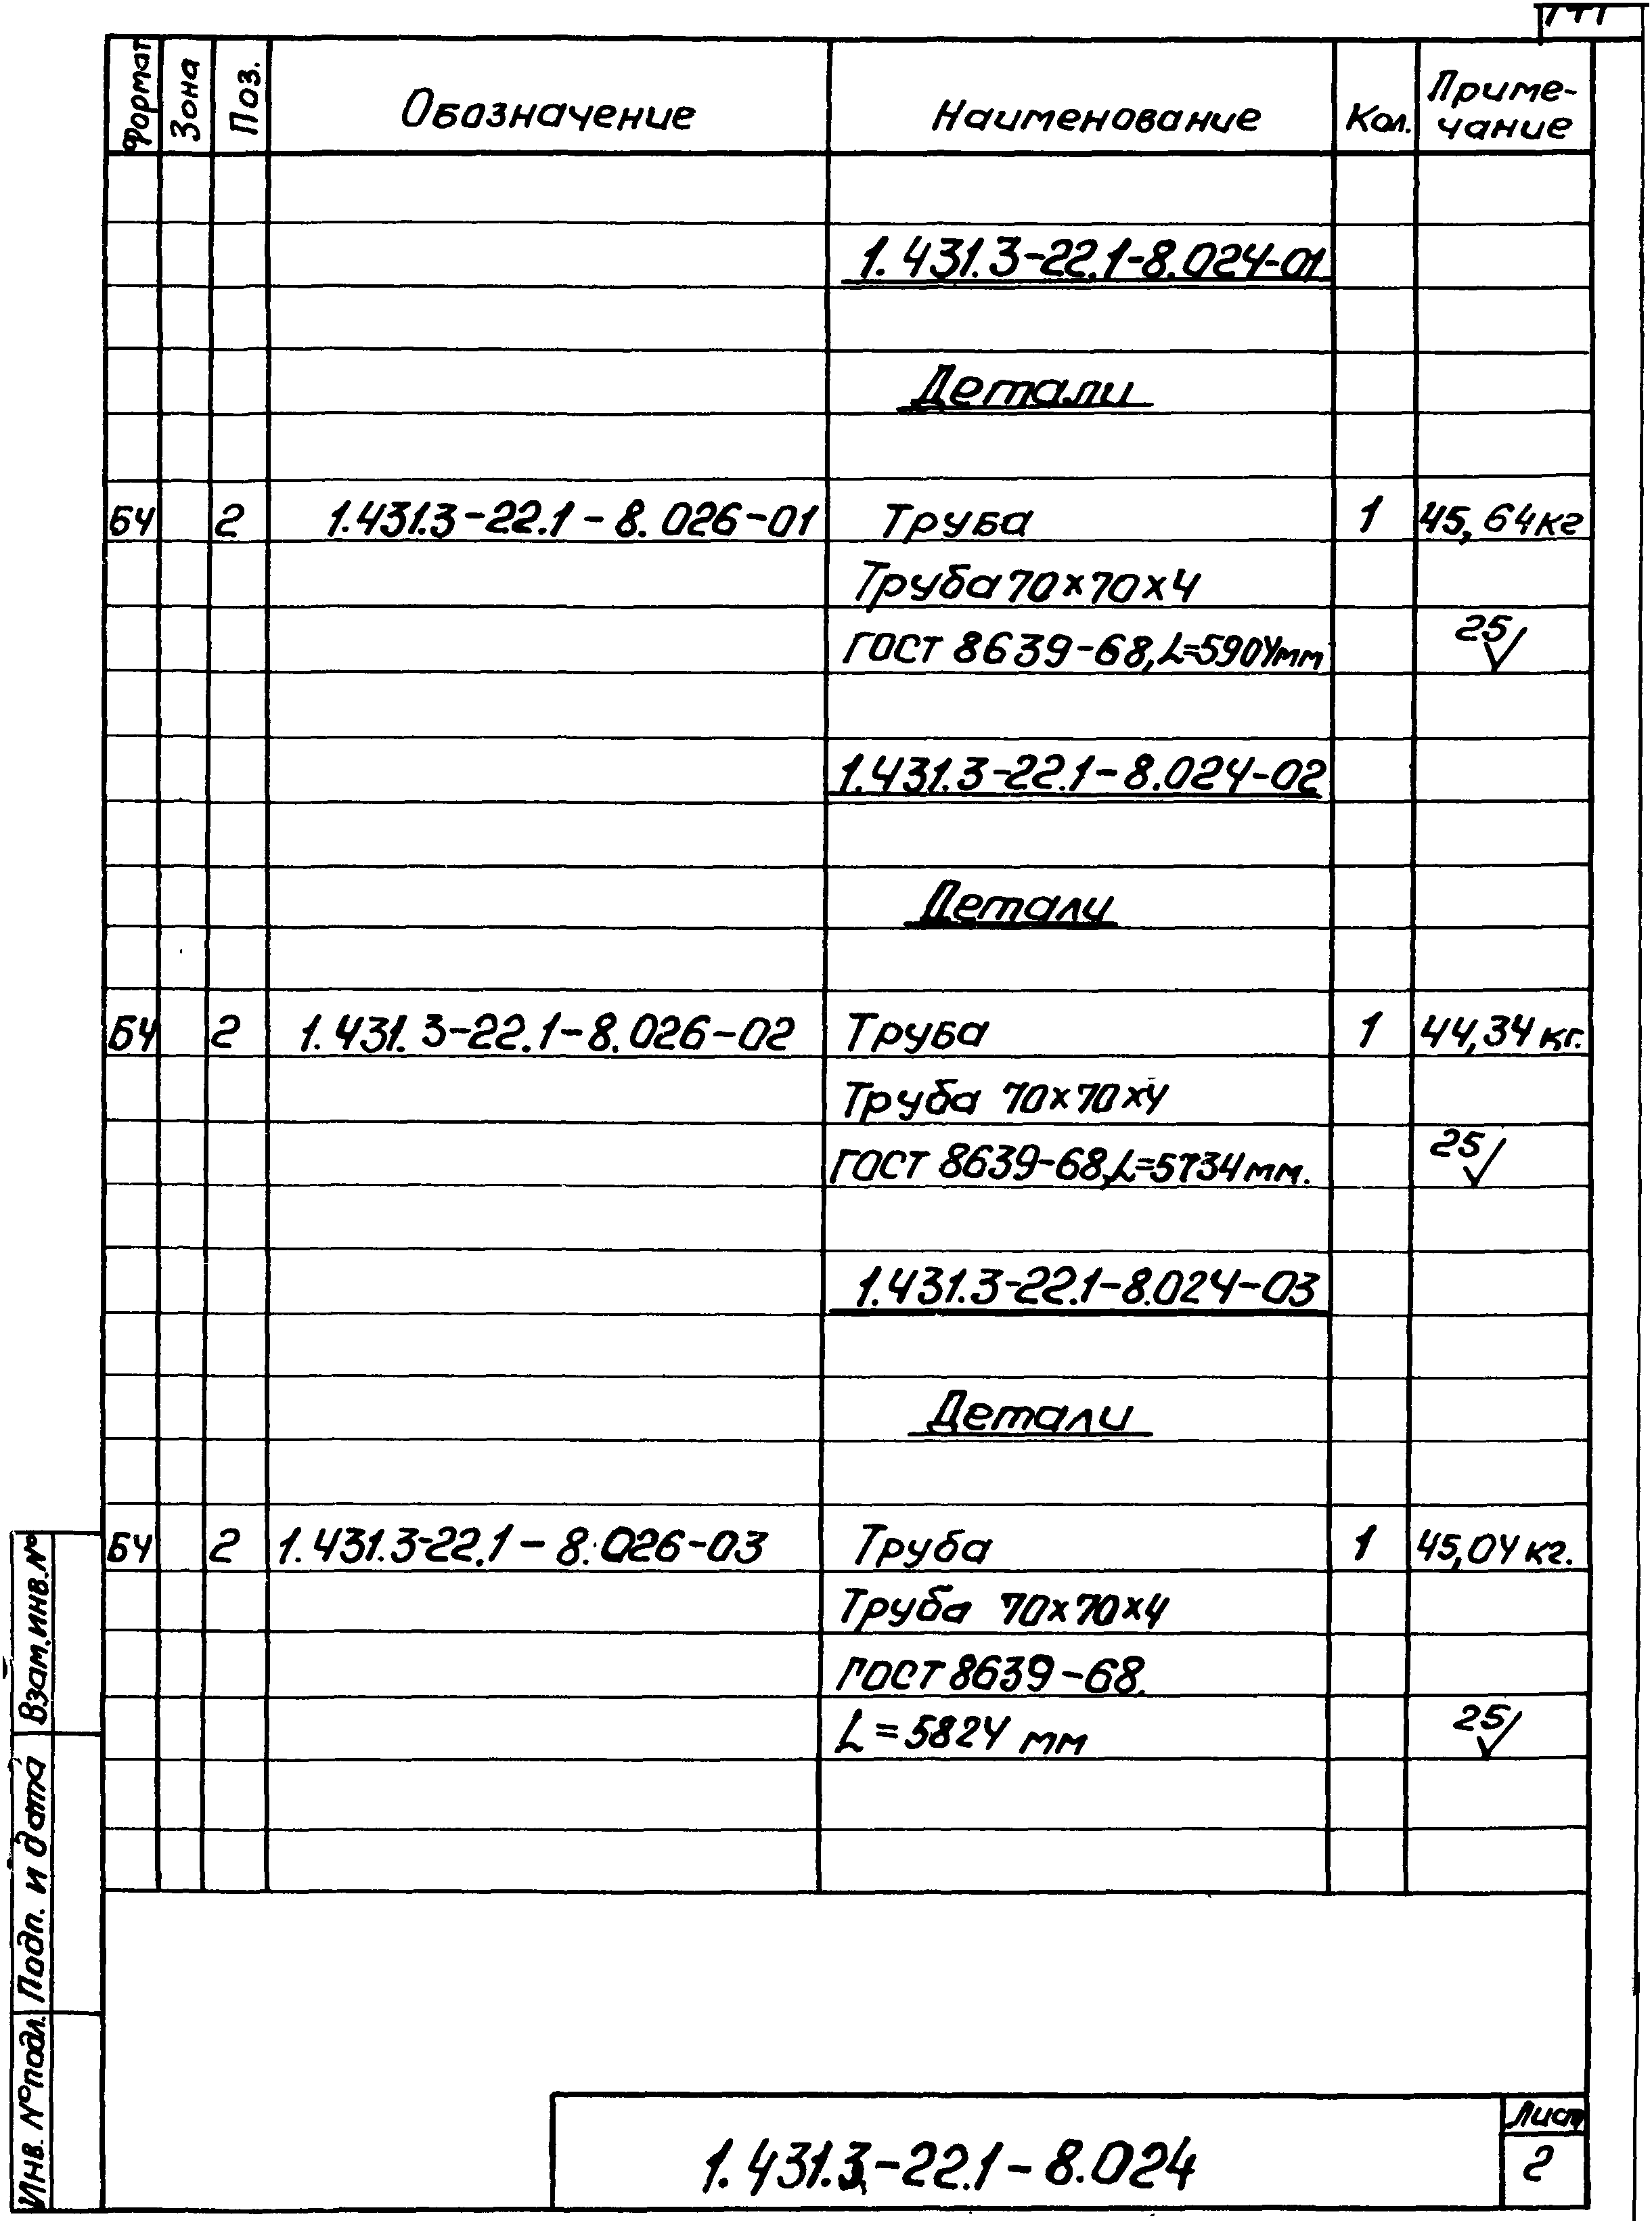 Формат Зона Поз. Обозначение Наименование Кол. Приме-
чание
1.431.3-22.1-8.024-01
Детали
БЧ 2 1.431.3-22.1-8.026-01 Труба 1 45,64кг
Труба 70×70×4
ГОСТ 8639-68, L=5904мм 25
1.431.3-22.1-8.024-02
Детали
БЧ 2 1.431.3-22.1-8.026-02 Труба 1 44,34 кг.
Труба 70×70×4
ГОСТ 8639-68, L=5734мм. 25
1.431.3-22.1-8.024-03
Детали
БЧ 2 1.431.3-22.1-8.026-03 Труба 1 45,04 кг.
Труба 70×70×4
ГОСТ 8639-68.
L=5824 мм 25
Взам.инв.№
Подп. и дата
Инв. №подл.
1.431.3-22.1-8.024
Лист
2